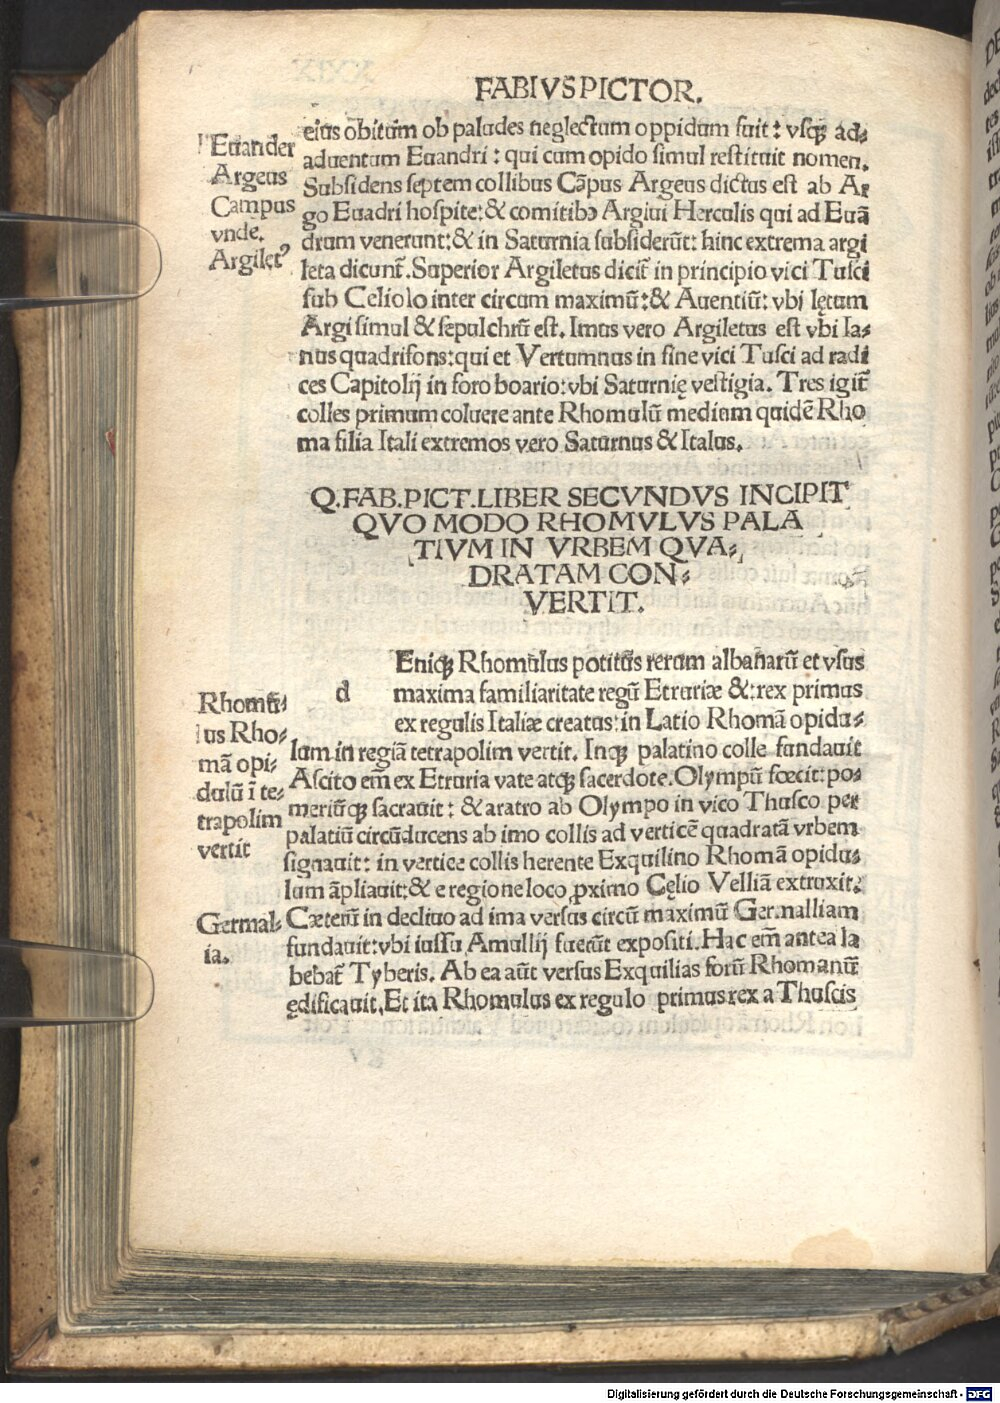 FABIVS PICTOR.
eius obitum ob paludes neglectum oppidum fuit: vsq; ad-
aduentum Euandri: qui cum opido simul restituit nomen.
Subsidens septem collibus Cāpus Argeus dictus est ab Ar
go Euādri hospite: & comitibꝰ Argiui Herculis qui ad Euā
drum venerunt: & in Saturnia subsiderūt: hinc extrema argi
leta dicunt̄. Superior Argiletus dicit̄ in principio vici Tusci
sub Celiolo inter circum maximū: & Auentiū: vbi lętum
Argi simul & sepulchrū est. Imus vero Argiletus est vbi Ia-
nus quadrifons: qui et Vertumnus in fine vici Tusci ad radi
ces Capitolij in foro boario: vbi Saturnię vestigia. Tres igit̄
colles primum coluere ante Rhomulū medium quidē Rho
ma filia Itali extremos vero Saturnus & Italus.
Euander
Argeus
Campus
vnde.
Argiletꝰ
Q. FAB. PICT. LIBER SECVNDVS INCIPIT
QVO MODO RHOMVLVS PALA
TIVM IN VRBEM QVA-
DRATAM CON-
VERTIT.
d Eniq; Rhomulus potitus rerum albanarū et vsus
maxima familiaritate regū Etruriæ &: rex primus
ex regulis Italiæ creatus: in Latio Rhomā opidu-
lum in regiā tetrapolim vertit. Inq; palatino colle fundauit
Ascito em̄ ex Etruria vate atq; sacerdote. Olympū fœcit: po-
meriūq; sacrauit: & aratro ab Olympo in vico Thusco per
palatiū circūducens ab imo collis ad verticē quadratā vrbem
signauit: in vertice collis herente Exquilino Rhomā opidu-
lum āpliauit: & e regione loco ꝓximo Cęlio Velliā extruxit.
Cæterū in decliuo ad ima versus circū maximū Germalliam
fundauit: vbi iussu Amullij fuerūt expositi. Hac em̄ antea la
bebat̄ Tyberis. Ab ea aūt versus Exquilias forū Rhomanū
edificauit. Et ita Rhomulus ex regulo primus rex a Thuscis
Rhomu-
lus Rho-
mā opi-
dulū ī te-
trapolim
vertit
Germal-
ia.
Digitalisierung gefördert durch die Deutsche Forschungsgemeinschaft - DFG